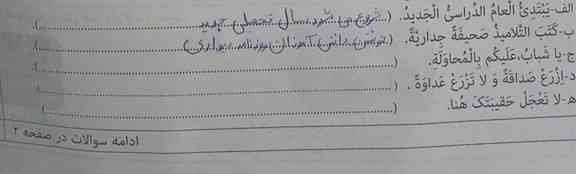 الف-يَبْتَدِئُ الْعامُ الدِّراسِیُّ الْجَدیدُ. (شروع می شود سال تحصیلی جدید)
ب-كَتَبَ التَّلاميذُ صَحيفَةً جِداريَّةً. (دانش آموزان روزنامه دیواری)
ج-يا شَبابُ، عَلَيكُم بِالْمُحاوَلَةِ. ()
د-اِزْرَعْ صَداقَةً وَ لا تَزْرَعْ عَداوَةً. ()
ه-لا تَعْجَلْ حَقيبَتَکَ هُنا. ()
ادامه سوالات در صفحه ۲